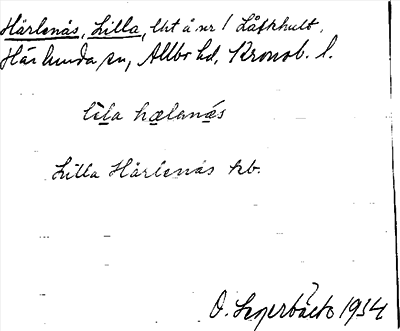 Härlenäs, Lilla, lht å nr 1 Låfkhult,
Härlunda sn, Allbo hd, Kronob. l.
lila hælanæs
Lilla Härlenäs kb.
O. 1934